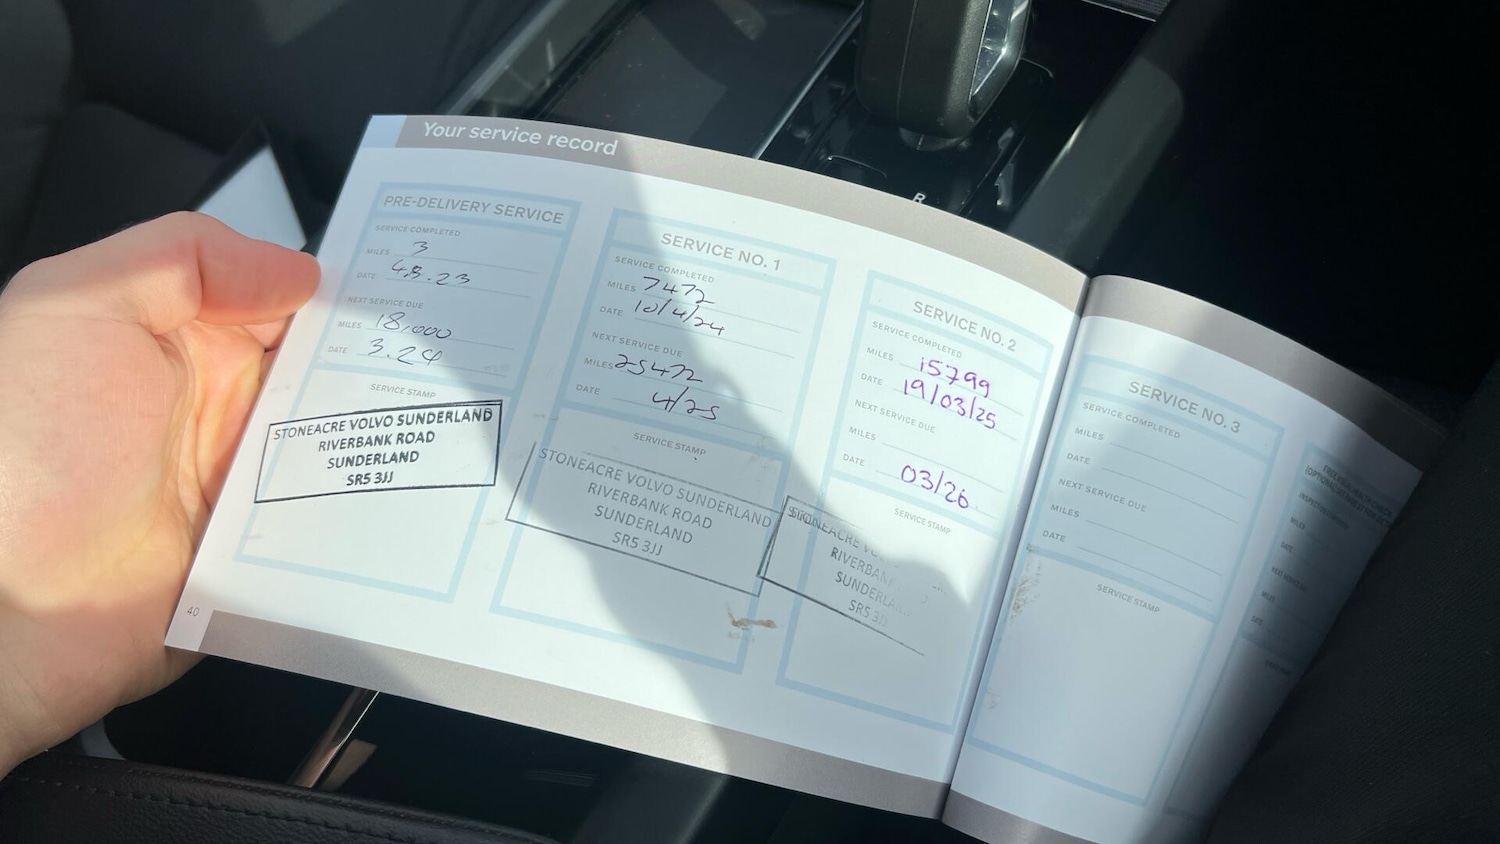 Your service record
PRE-DELIVERY SERVICE
SERVICE COMPLETED
MILES 3
DATE
NEXT SERVICE DUE
MILES 18,000
DATE 3.24
SERVICE STAMP
STONEACRE VOLVO SUNDERLAND
RIVERBANK ROAD
SUNDERLAND
SR5 3JJ
40
SERVICE NO. 1
SERVICE COMPLETED
MILES 7472
DATE 10/4/24
NEXT SERVICE DUE
MILES 25472
DATE 4/25
SERVICE STAMP
STONEACRE VOLVO SUNDERLAND
RIVERBANK ROAD
SUNDERLAND
SR5 3JJ
SERVICE NO. 2
SERVICE COMPLETED
MILES 15799
DATE 19/03/25
NEXT SERVICE DUE
MILES
DATE 03/26
SERVICE STAMP
STONEACRE
RIVERBANK
SUNDERLAND
SR5 3JJ
SERVICE NO. 3
SERVICE COMPLETED
MILES
DATE
NEXT SERVICE DUE
MILES
DATE
SERVICE STAMP
MILES
DATE
NEXT SERVICE DUE
MILES
DATE
SERVICE STAMP
R